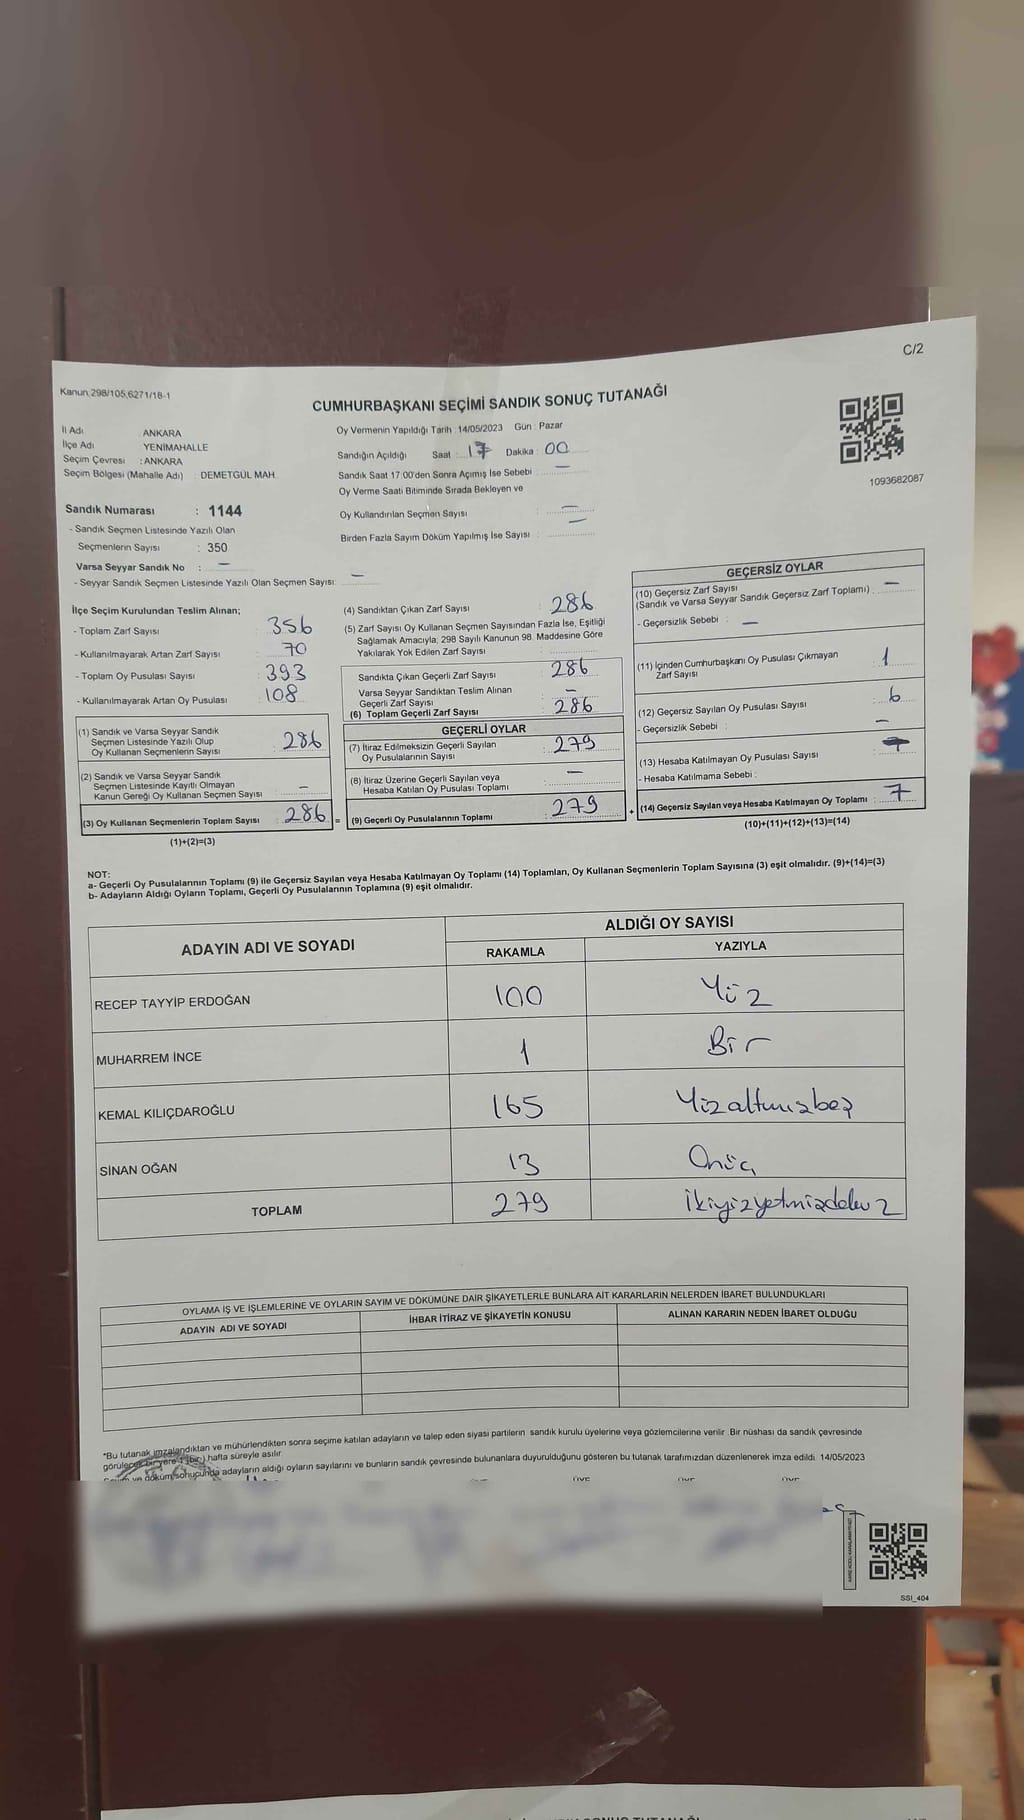 C/2
Kanun;298/105,6271/18-1
CUMHURBAŞKANI SEÇİMİ SANDIK SONUÇ TUTANAĞI
1093682087
İl Adı : ANKARA
İlçe Adı : YENİMAHALLE
Seçim Çevresi : ANKARA
Seçim Bölgesi (Mahalle Adı) : DEMETGÜL MAH.
Oy Vermenin Yapıldığı Tarih :14/05/2023 Gün : Pazar
Sandığın Açıldığı Saat : 17 Dakika : 00
Sandık Saat 17:00'den Sonra Açımış İse Sebebi : —
Oy Verme Saati Bitiminde Sırada Bekleyen ve
Oy Kullandırılan Seçmen Sayısı : —
Birden Fazla Sayım Döküm Yapılmış İse Sayısı : —
Sandık Numarası : 1144
- Sandık Seçmen Listesinde Yazılı Olan
Seçmenlerin Sayısı : 350
Varsa Seyyar Sandık No : —
- Seyyar Sandık Seçmen Listesinde Yazılı Olan Seçmen Sayısı: —
İlçe Seçim Kurulundan Teslim Alınan;
- Toplam Zarf Sayısı : 356
- Kullanılmayarak Artan Zarf Sayısı : 70
- Toplam Oy Pusulası Sayısı : 393
- Kullanılmayarak Artan Oy Pusulası : 108
(1) Sandık ve Varsa Seyyar Sandık
Seçmen Listesinde Yazılı Olup
Oy Kullanan Seçmenlerin Sayısı : 286
(2) Sandık ve Varsa Seyyar Sandık
Seçmen Listesinde Kayıtlı Olmayan
Kanun Gereği Oy Kullanan Seçmen Sayısı : —
(3) Oy Kullanan Seçmenlerin Toplam Sayısı : 286 =
(1)+(2)=(3)
(4) Sandıktan Çıkan Zarf Sayısı : 286
(5) Zarf Sayısı Oy Kullanan Seçmen Sayısından Fazla İse, Eşitliği
Sağlamak Amacıyla; 298 Sayılı Kanunun 98. Maddesine Göre
Yakılarak Yok Edilen Zarf Sayısı :
Sandıkta Çıkan Geçerli Zarf Sayısı : 286
Varsa Seyyar Sandıktan Teslim Alınan
Geçerli Zarf Sayısı : —
(6) Toplam Geçerli Zarf Sayısı : 286
GEÇERLİ OYLAR
(7) İtiraz Edilmeksizin Geçerli Sayılan
Oy Pusulalarının Sayısı : 279
(8) İtiraz Üzerine Geçerli Sayılan veya
Hesaba Katılan Oy Pusulası Toplamı : —
(9) Geçerli Oy Pusulalarının Toplamı : 279 +
GEÇERSİZ OYLAR
(10) Geçersiz Zarf Sayısı
(Sandık ve Varsa Seyyar Sandık Geçersiz Zarf Toplamı) : —
- Geçersizlik Sebebi : —
(11) İçinden Cumhurbaşkanı Oy Pusulası Çıkmayan
Zarf Sayısı : 1
(12) Geçersiz Sayılan Oy Pusulası Sayısı : 6
- Geçersizlik Sebebi : —
(13) Hesaba Katılmayan Oy Pusulası Sayısı :
- Hesaba Katılmama Sebebi :
(14) Geçersiz Sayılan veya Hesaba Katılmayan Oy Toplamı : 7
(10)+(11)+(12)+(13)=(14)
NOT:
a- Geçerli Oy Pusulalarının Toplamı (9) ile Geçersiz Sayılan veya Hesaba Katılmayan Oy Toplamı (14) Toplamları, Oy Kullanan Seçmenlerin Toplam Sayısına (3) eşit olmalıdır. (9)+(14)=(3)
b- Adayların Aldığı Oyların Toplamı, Geçerli Oy Pusulalarının Toplamına (9) eşit olmalıdır.
ADAYIN ADI VE SOYADI ALDIĞI OY SAYISI
RAKAMLA YAZIYLA
RECEP TAYYİP ERDOĞAN 100 Yüz
MUHARREM İNCE 1 Bir
KEMAL KILIÇDAROĞLU 165 Yüzaltmışbeş
SİNAN OĞAN 13 Onüç
TOPLAM 279 İkiyüzyetmişdokuz
OYLAMA İŞ VE İŞLEMLERİNE VE OYLARIN SAYIM VE DÖKÜMÜNE DAİR ŞİKAYETLERLE BUNLARA AİT KARARLARIN NELERDEN İBARET BULUNDUKLARI
ADAYIN ADI VE SOYADI İHBAR İTİRAZ VE ŞİKAYETİN KONUSU ALINAN KARARIN NEDEN İBARET OLDUĞU
*Bu tutanak imzalandıktan ve mühürlendikten sonra seçime katılan adayların ve talep eden siyasi partilerin sandık kurulu üyelerine veya gözlemcilerine verilir. Bir nüshası da sandık çevresinde
görülecek bir yere 1 (bir) hafta süreyle asılır.
ve döküm sonucunda adayların aldığı oyların sayılarını ve bunların sandık çevresinde bulunanlara duyurulduğunu gösteren bu tutanak tarafımızdan düzenlenerek imza edildi. 14/05/2023
SSI_404